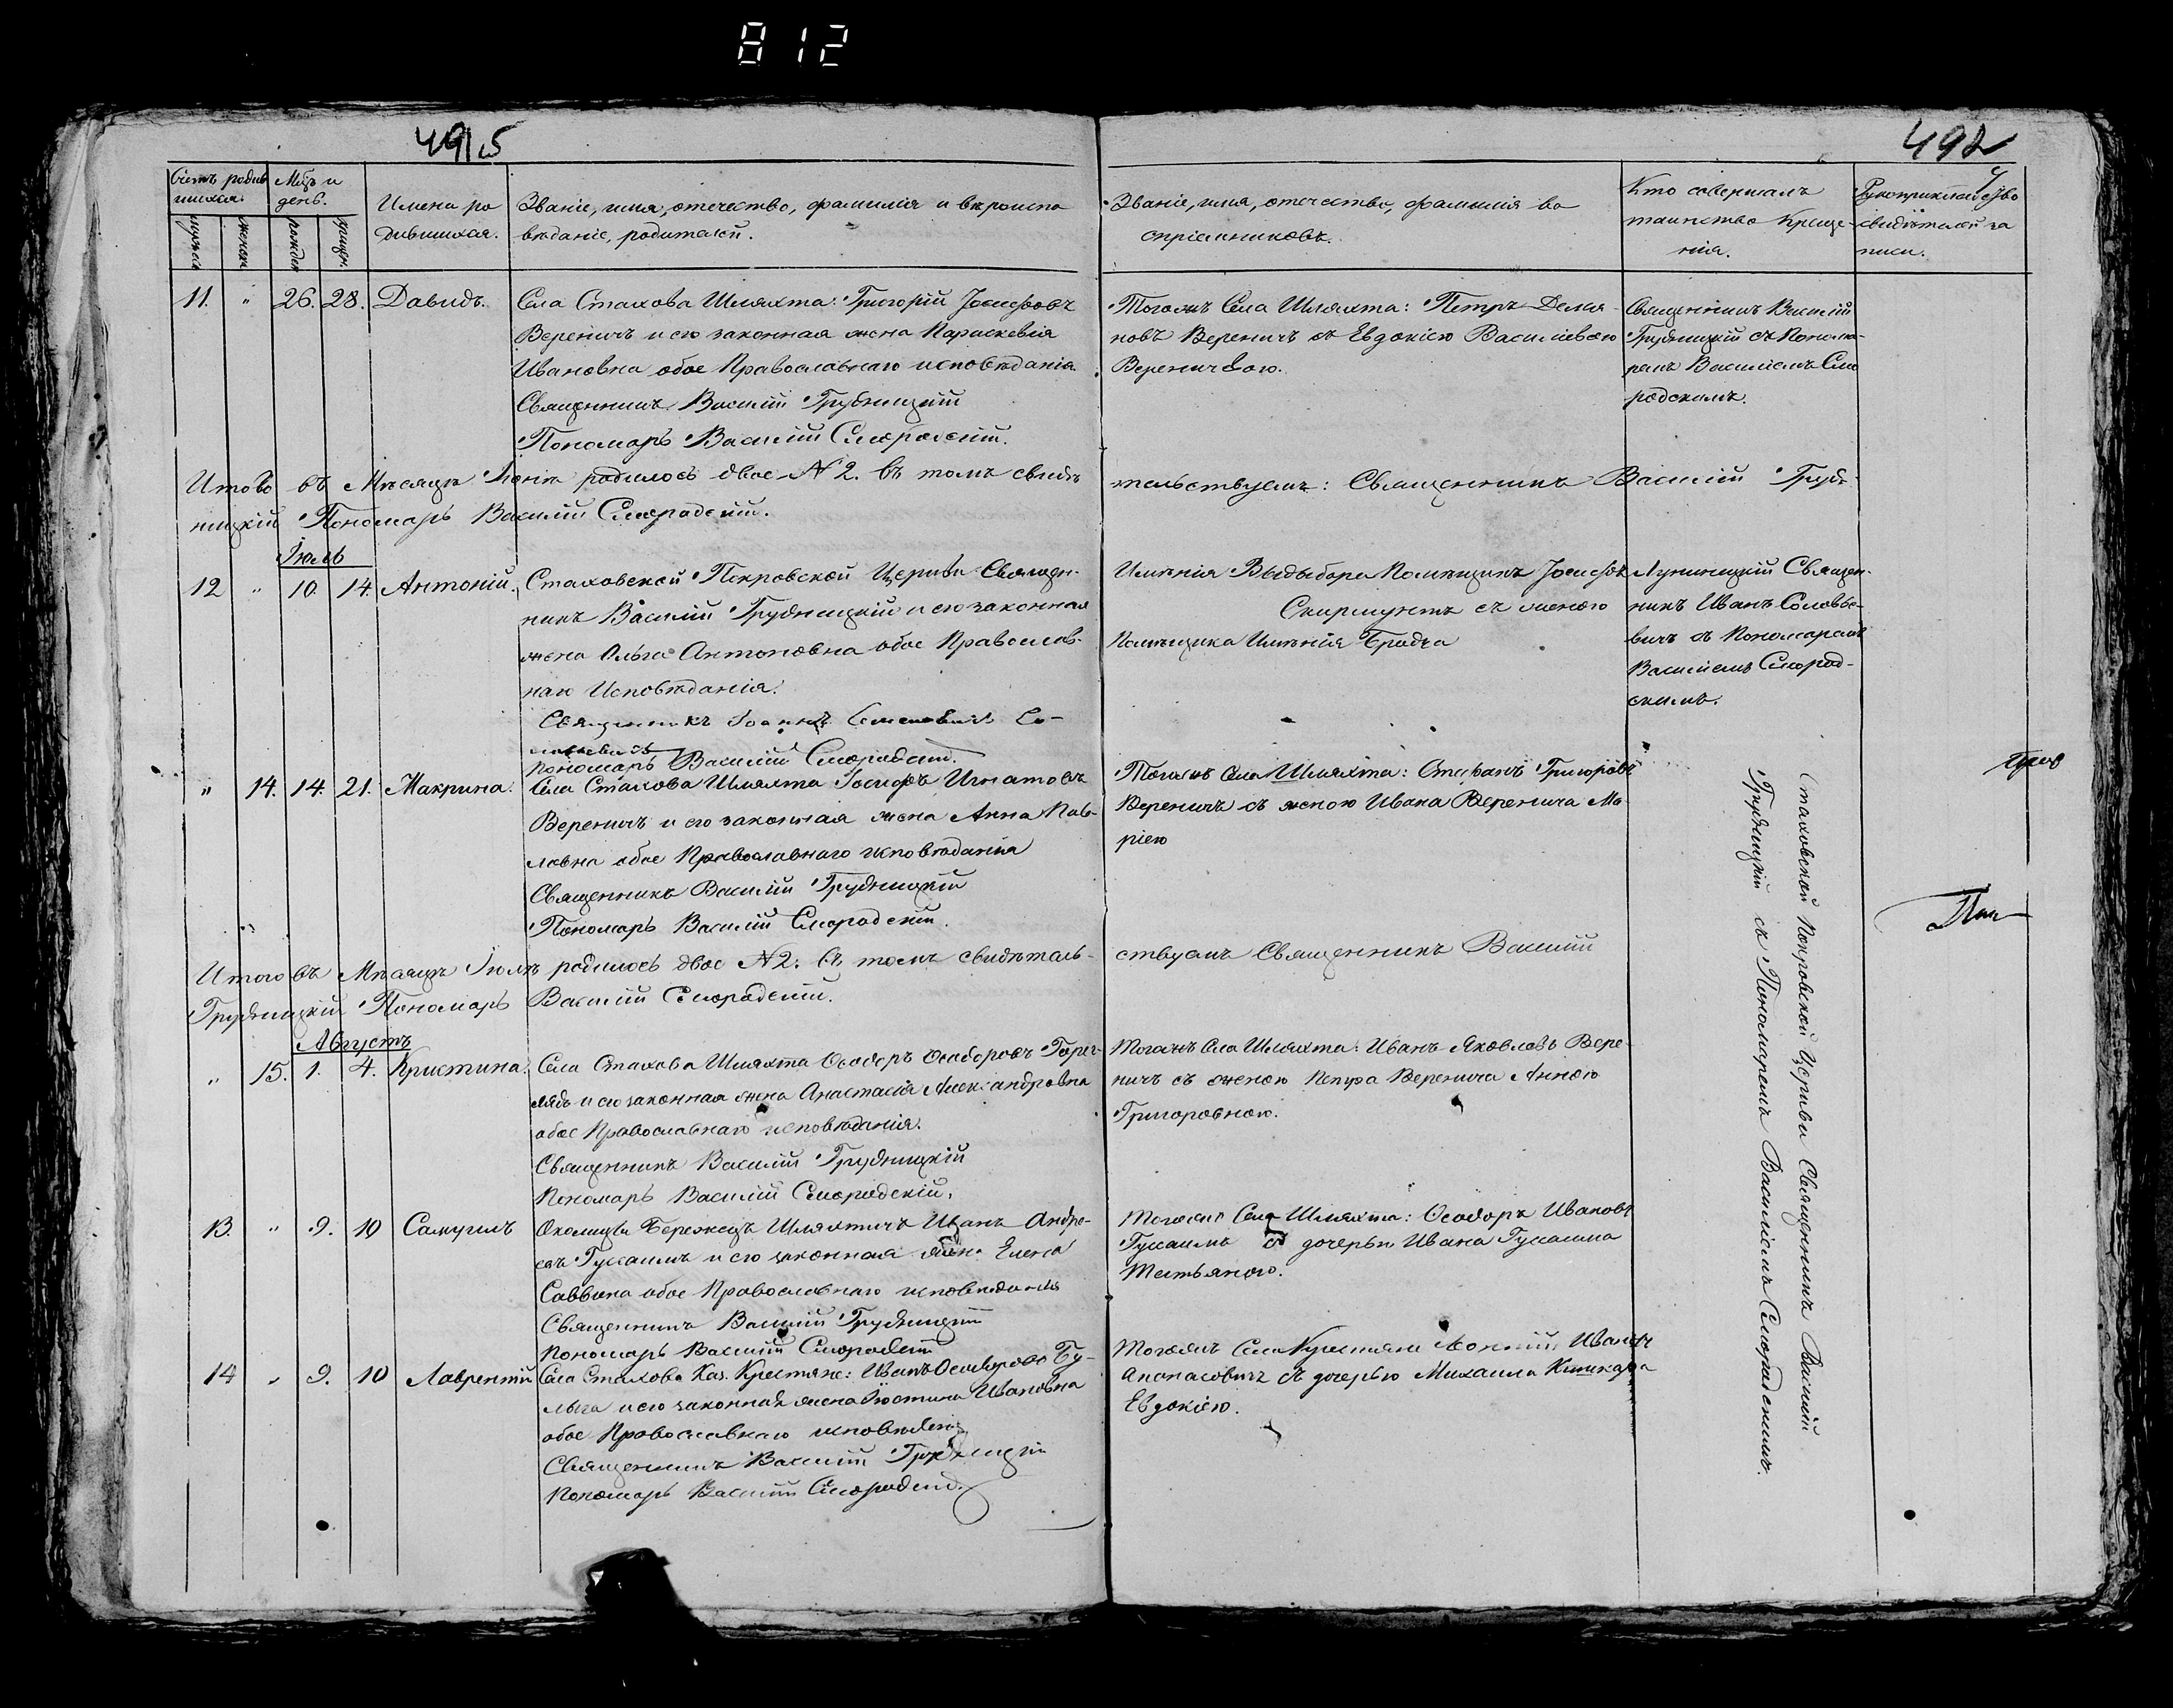 812
491
492
Счетъ родив
шихся.
мужеска
женска
Мѣцъ и
день.
рожден
крещен.
Имена ро
дившихся.
Званіе, имя, отечество, фамилія и вѣроиспо
вѣданіе, родителей.
Званіе, имя, отечество, фамилія во
спріемниковъ.
Кто совершалъ
таинство Креще-
нія.
Рукоприкладство
свидѣтелей за
писи.
11. " 26. 28. Давидъ.
Села Стахова Шляхта: Григорій Іосифовъ
Вереничъ и его законная жена Параскевія
Ивановна обое Православнаго исповѣданія
Священникъ Василій Грудницкій
Пономарь Василій Смородскій.
Тогожъ Села Шляхта: Петръ Демья-
новъ Вереничъ съ Евдокією Василіевою
Вереничевою.
Священникъ Василій
Грудницкій съ Понома-
ремъ Василіемъ Смо
родскимъ.
Итого въ Мѣсяцѣ Іюнѣ родилось двое N 2. въ томъ свидѣ
тельствуемъ: Священникъ Василій Груд-
ницкій Пономарь Василій Смородскій.
Іюль
12 " 10. 14. Антоній.
Стаховской Покровской Церкви Священ-
никъ Василій Грудницкій и его законная
жена Ольга Антоновна обое Православ-
наго Исповѣданія.
Священникъ Іоаннъ Семеновичъ Со-
ловьевичъ
Пономарь Василій Смородскій.
Имѣнія Выдыбора Помѣщикъ Іосифъ
Скирмунтъ съ женою
Помѣщика Имѣнія Бродча
Лунинецкій Священ-
никъ Иванъ Соловье-
вичъ съ Пономаремъ
Василіемъ Смород-
скимъ.
" 14. 14. 21. Макрина.
Села Стахова Шляхта Іосифъ Игнатовъ
Вереничъ и его законная жена Анна Пав-
ловна обое Православнаго исповѣданія
Священникъ Василій Грудницкій
Пономарь Василій Смородскій.
Тогожъ Села Шляхта: Стефанъ Григоровъ
Вереничъ съ женою Ивана Веренича Ма
рією
Стаховской Покровской Церкви Священникъ Василій
Грудницкій съ Пономаремъ Василіемъ Смородскимъ.
Итого въ Мѣсяцѣ Іюлѣ родилось двое N 2. въ томъ свидѣтель-
ствуемъ Священникъ Василій
Грудницкій Пономарь Василій Смородскій.
Августъ
" 15. 1. 4. Кристина.
Села Стахова Шляхта Ѳеодоръ Ѳеодоровъ Горег-
лядъ и его законная жена Анастасія Александровна
обое Православнаго исповѣданія.
Священникъ Василій Грудницкій
Пономарь Василій Смородскій.
Тогожъ Села Шляхта: Иванъ Яковлевъ Вере-
ничъ съ женою Петра Веренича Анною
Григоровною.
13. " 9. 10 Самуилъ
Околицы Бережецъ Шляхтичъ Иванъ Андре-
евъ Гуссаимъ и его законная жена Елена
Саввина обое Православнаго исповѣданія
Священникъ Василій Грудницкій
Пономарь Василій Смородскій
Тогожъ Села Шляхта: Ѳеодоръ Ивановъ
Гуссаимъ съ дочерью Ивана Гуссаима
Татьяною.
14 " 9. 10 Лаврентій
Села Стахова Каз. Крестяне: Иванъ Ѳеодоровъ Бу-
лыга и его законная жена Іюстина Ивановна
обое Православнаго исповѣдан
Священникъ Василій Грудницкій
Пономарь Василій Смородскій.
Тогожъ Села Крестяне Леонтій Ивановъ
Апанасовичъ съ дочерью Михаила
Евдокією.